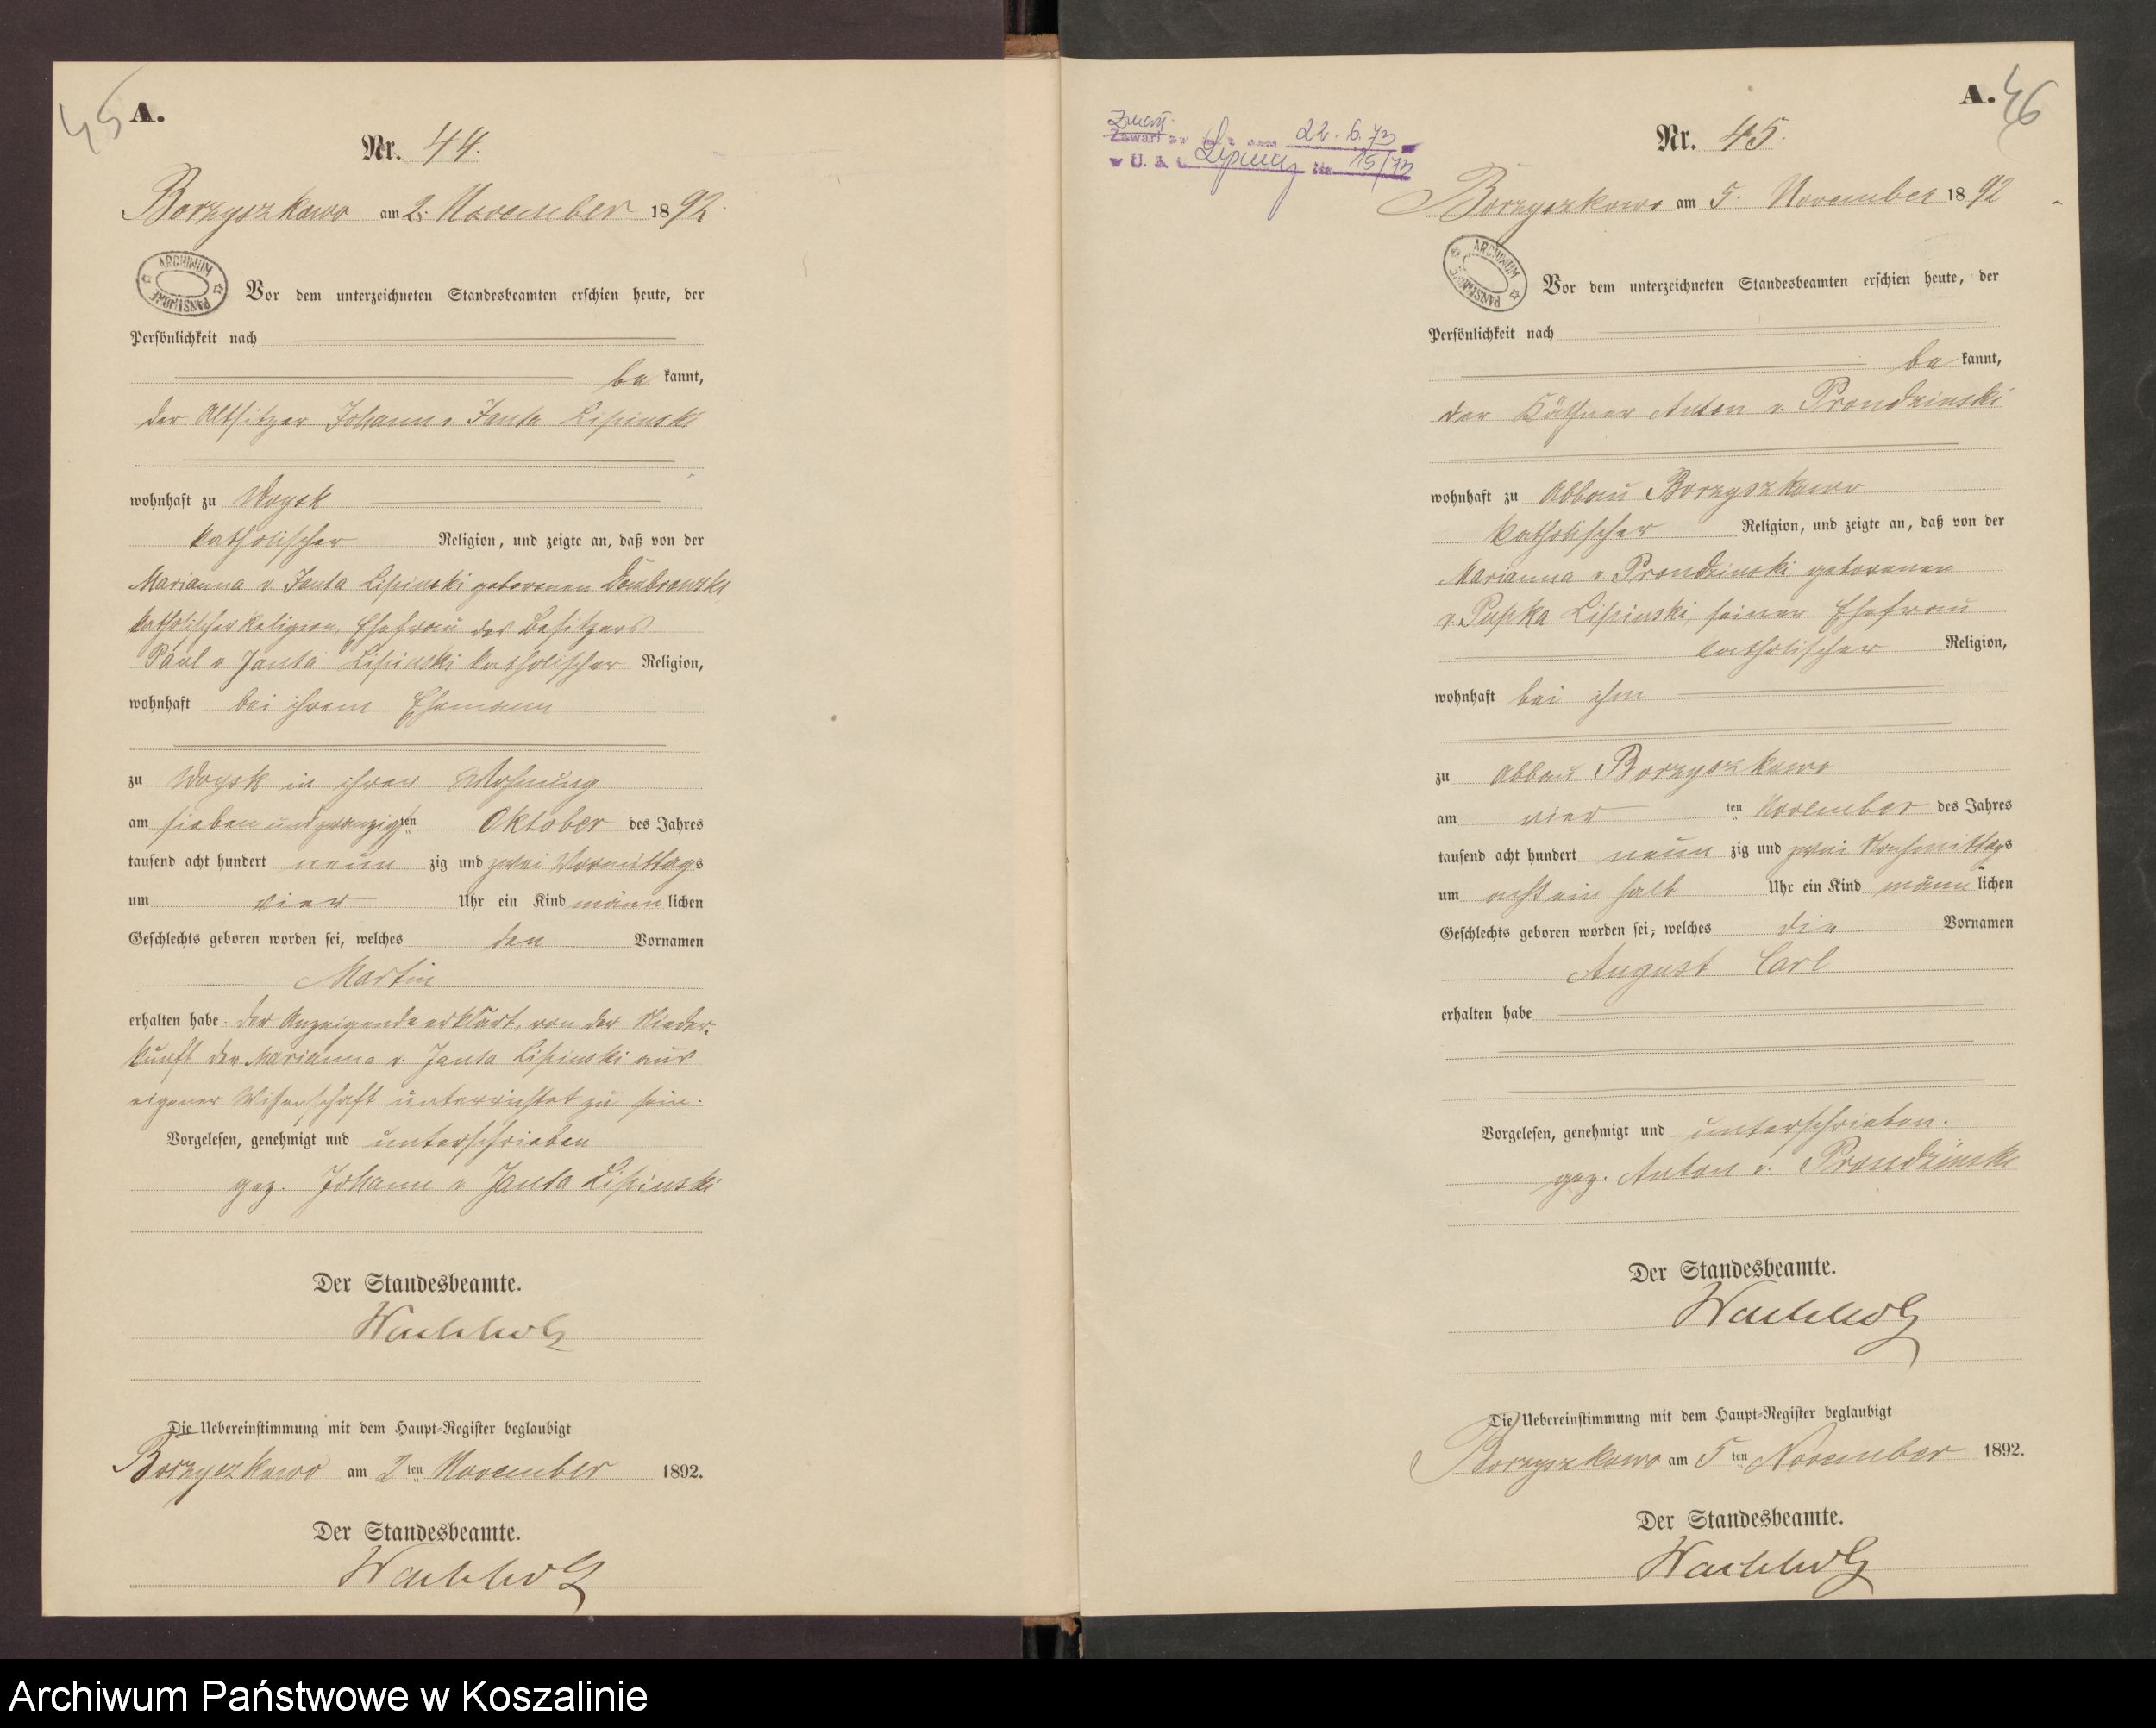 45
A.
Nr. 44.
Borzyszkowo am 2. November 1892.
ARCHIWUM PAŃSTWOWE
Vor dem unterzeichneten Standesbeamten erschien heute, der
Persönlichkeit nach
be kannt,
der Altsitzer Johann v. Janta Lipinski
wohnhaft zu Woysk
katholischer Religion, und zeigte an, daß von der
Marianna v Janta Lipinski geborenen Dombrowski
katholischer Religion, Ehefrau des Besitzers
Paul v Janta Lipinski katholischer Religion,
wohnhaft bei ihrem Ehemann
zu Woysk in ihrer Wohnung
am sieben und zwanzigsten Oktober des Jahres
tausend acht hundert neun zig und zwei Vormittags
um vier Uhr ein Kind männ lichen
Geschlechts geboren worden sei, welches den Vornamen
Martin
erhalten habe. Der Anzeigende erklärt, von der Nieder-
kunft der Marianna v. Janta Lipinski aus
eigener Wissenschaft unterrichtet zu sein.
Vorgelesen, genehmigt und unterschrieben
gez. Johann v Janta Lipinski
Der Standesbeamte.
Wachholz
Die Uebereinstimmung mit dem Haupt-Register beglaubigt
Borzyszkowo am 2 ten November 1892.
Der Standesbeamte.
Wachholz
A. 46
Zmarł
Zawarł 22.6.73
w U. S. C. Lipnicy Nr. 15/73
Nr. 45.
Borzyszkowo am 5. November 1892
ARCHIWUM PAŃSTWOWE
Vor dem unterzeichneten Standesbeamten erschien heute, der
Persönlichkeit nach
be kannt,
der Käthner Anton v. Prondzinski
wohnhaft zu Abbau Borzyszkowo
katholischer Religion, und zeigte an, daß von der
Marianna v Prondzinski geborenen
v. Pupka Lipinski, seiner Ehefrau
katholischer Religion,
wohnhaft bei ihm
zu Abbau Borzyszkowo
am vier ten November des Jahres
tausend acht hundert neun zig und zwei Nachmittags
um acht ein halb Uhr ein Kind männ lichen
Geschlechts geboren worden sei, welches die Vornamen
August Carl
erhalten habe
Vorgelesen, genehmigt und unterschrieben.
gez. Anton v. Prondzinski
Der Standesbeamte.
Wachholz
Die Uebereinstimmung mit dem Haupt-Register beglaubigt
Borzyszkowo am 5 ten November 1892.
Der Standesbeamte.
Wachholz
Archiwum Państwowe w Koszalinie